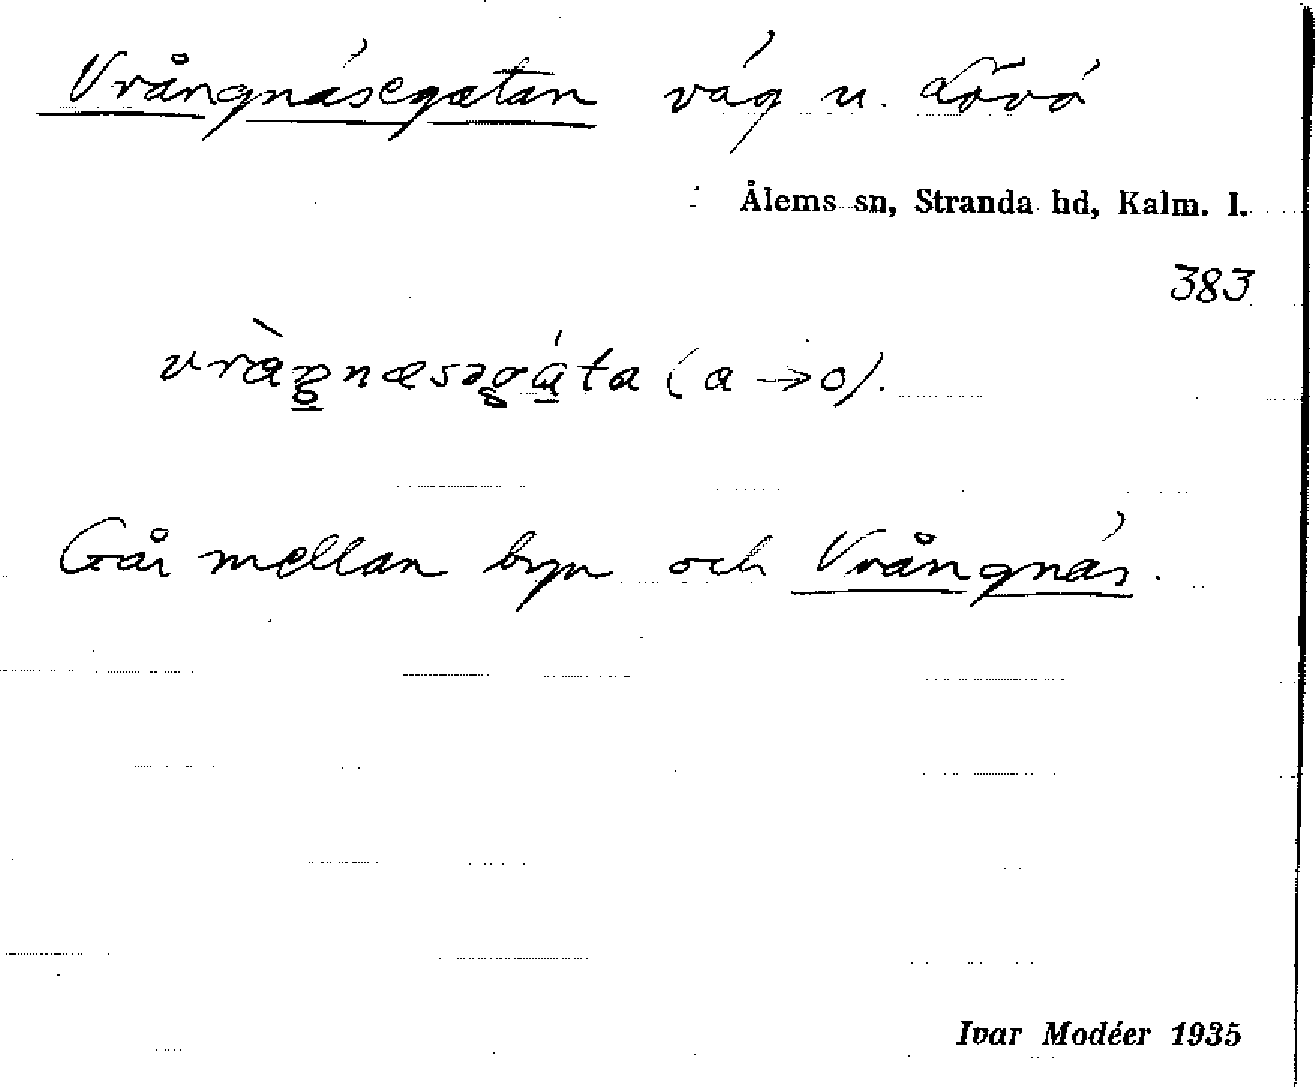 Vrångnäsegatan väg u. Lövö
Ålems sn, Stranda hd, Kalm. l.
383
(a → o).
Går mellan byn och Vrångnäs.
Ivar Modéer 1935